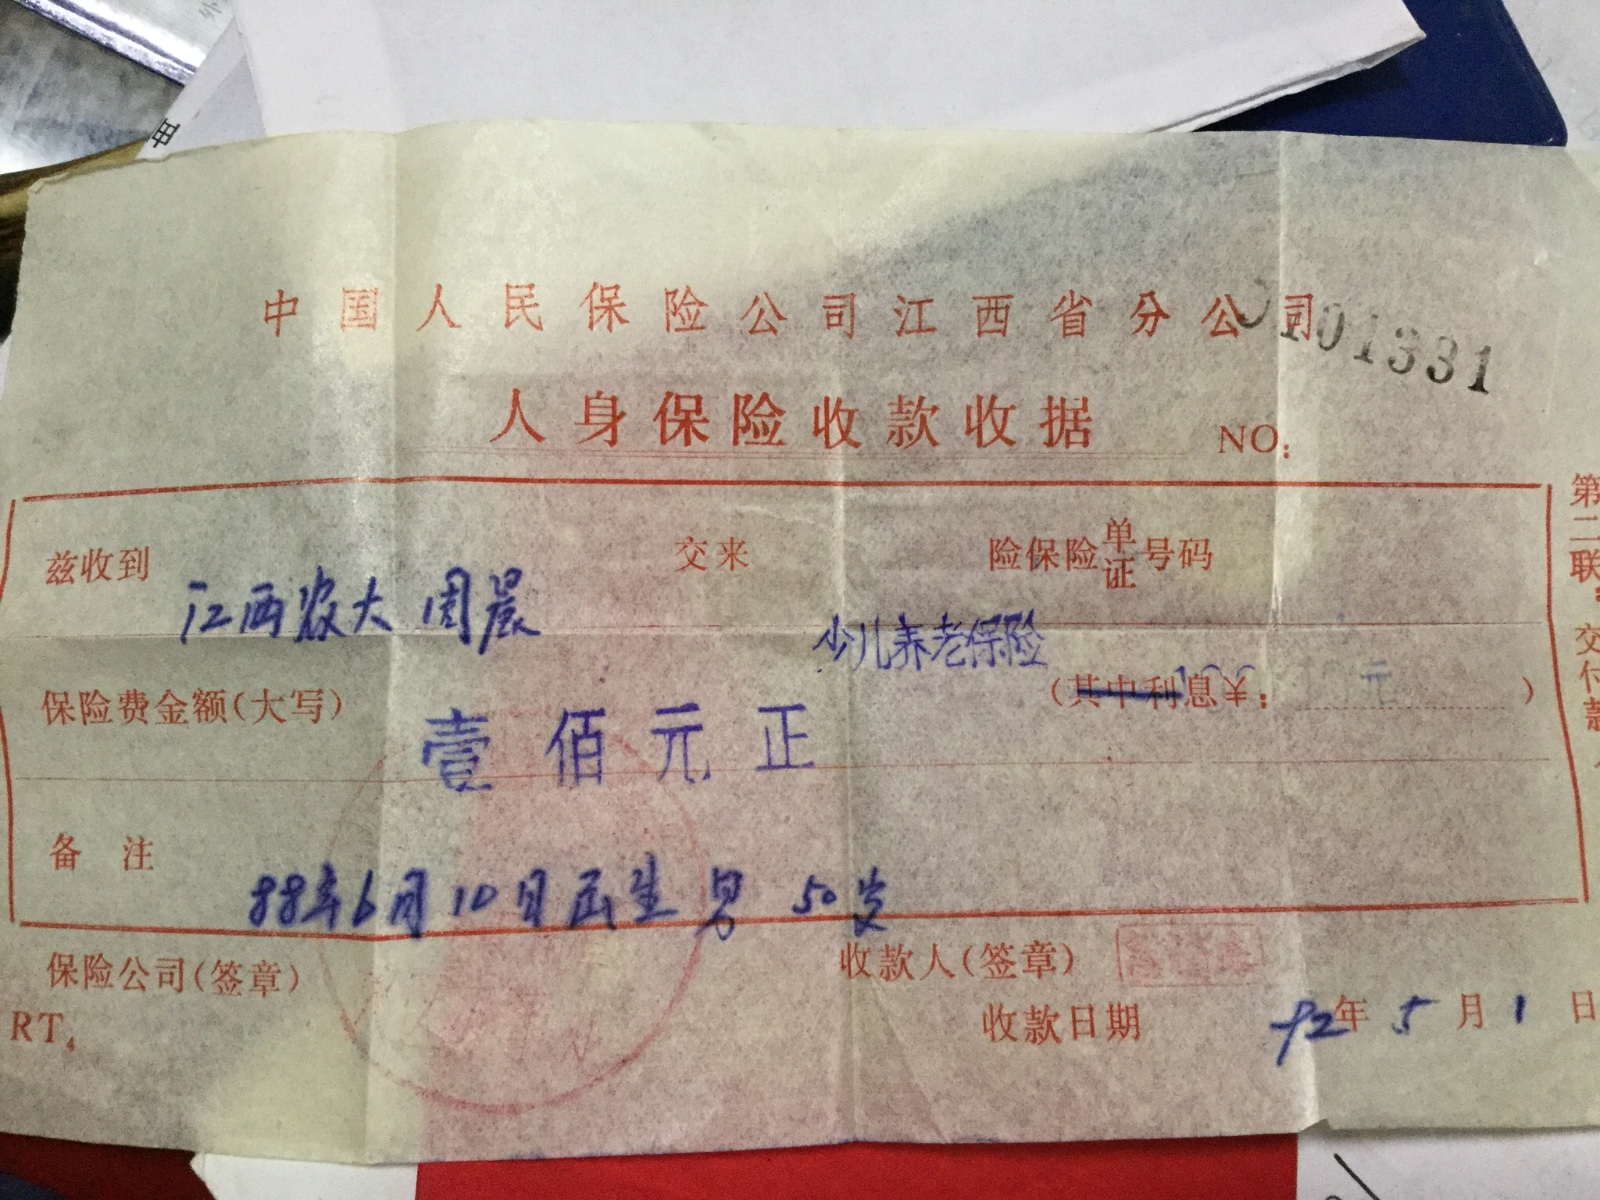 中国人民保险公司江西省分公司
0101331
人身保险收款收据 NO:
兹收到 江西农大 周晨 交来 少儿养老保险 险保险单证号码
保险费金额(大写) 壹佰元正 (其中利息¥: 100元)
备注 88年6月10日出生 男 50岁
保险公司(签章) 收款人(签章)
收款日期 92年5月1日
RT4
第二联:交付款人